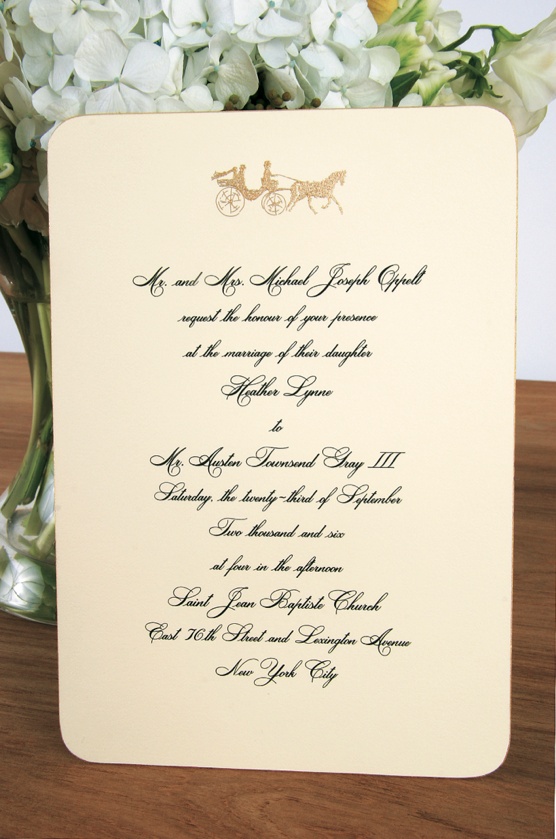 Mr. and Mrs. Michael Joseph Oppelt
request the honour of your presence
at the marriage of their daughter
Heather Lynne
to
Mr. Austen Townsend Gray III
Saturday, the twenty-third of September
Two thousand and six
at four in the afternoon
Saint Jean Baptiste Church
East 76th Street and Lexington Avenue
New York City